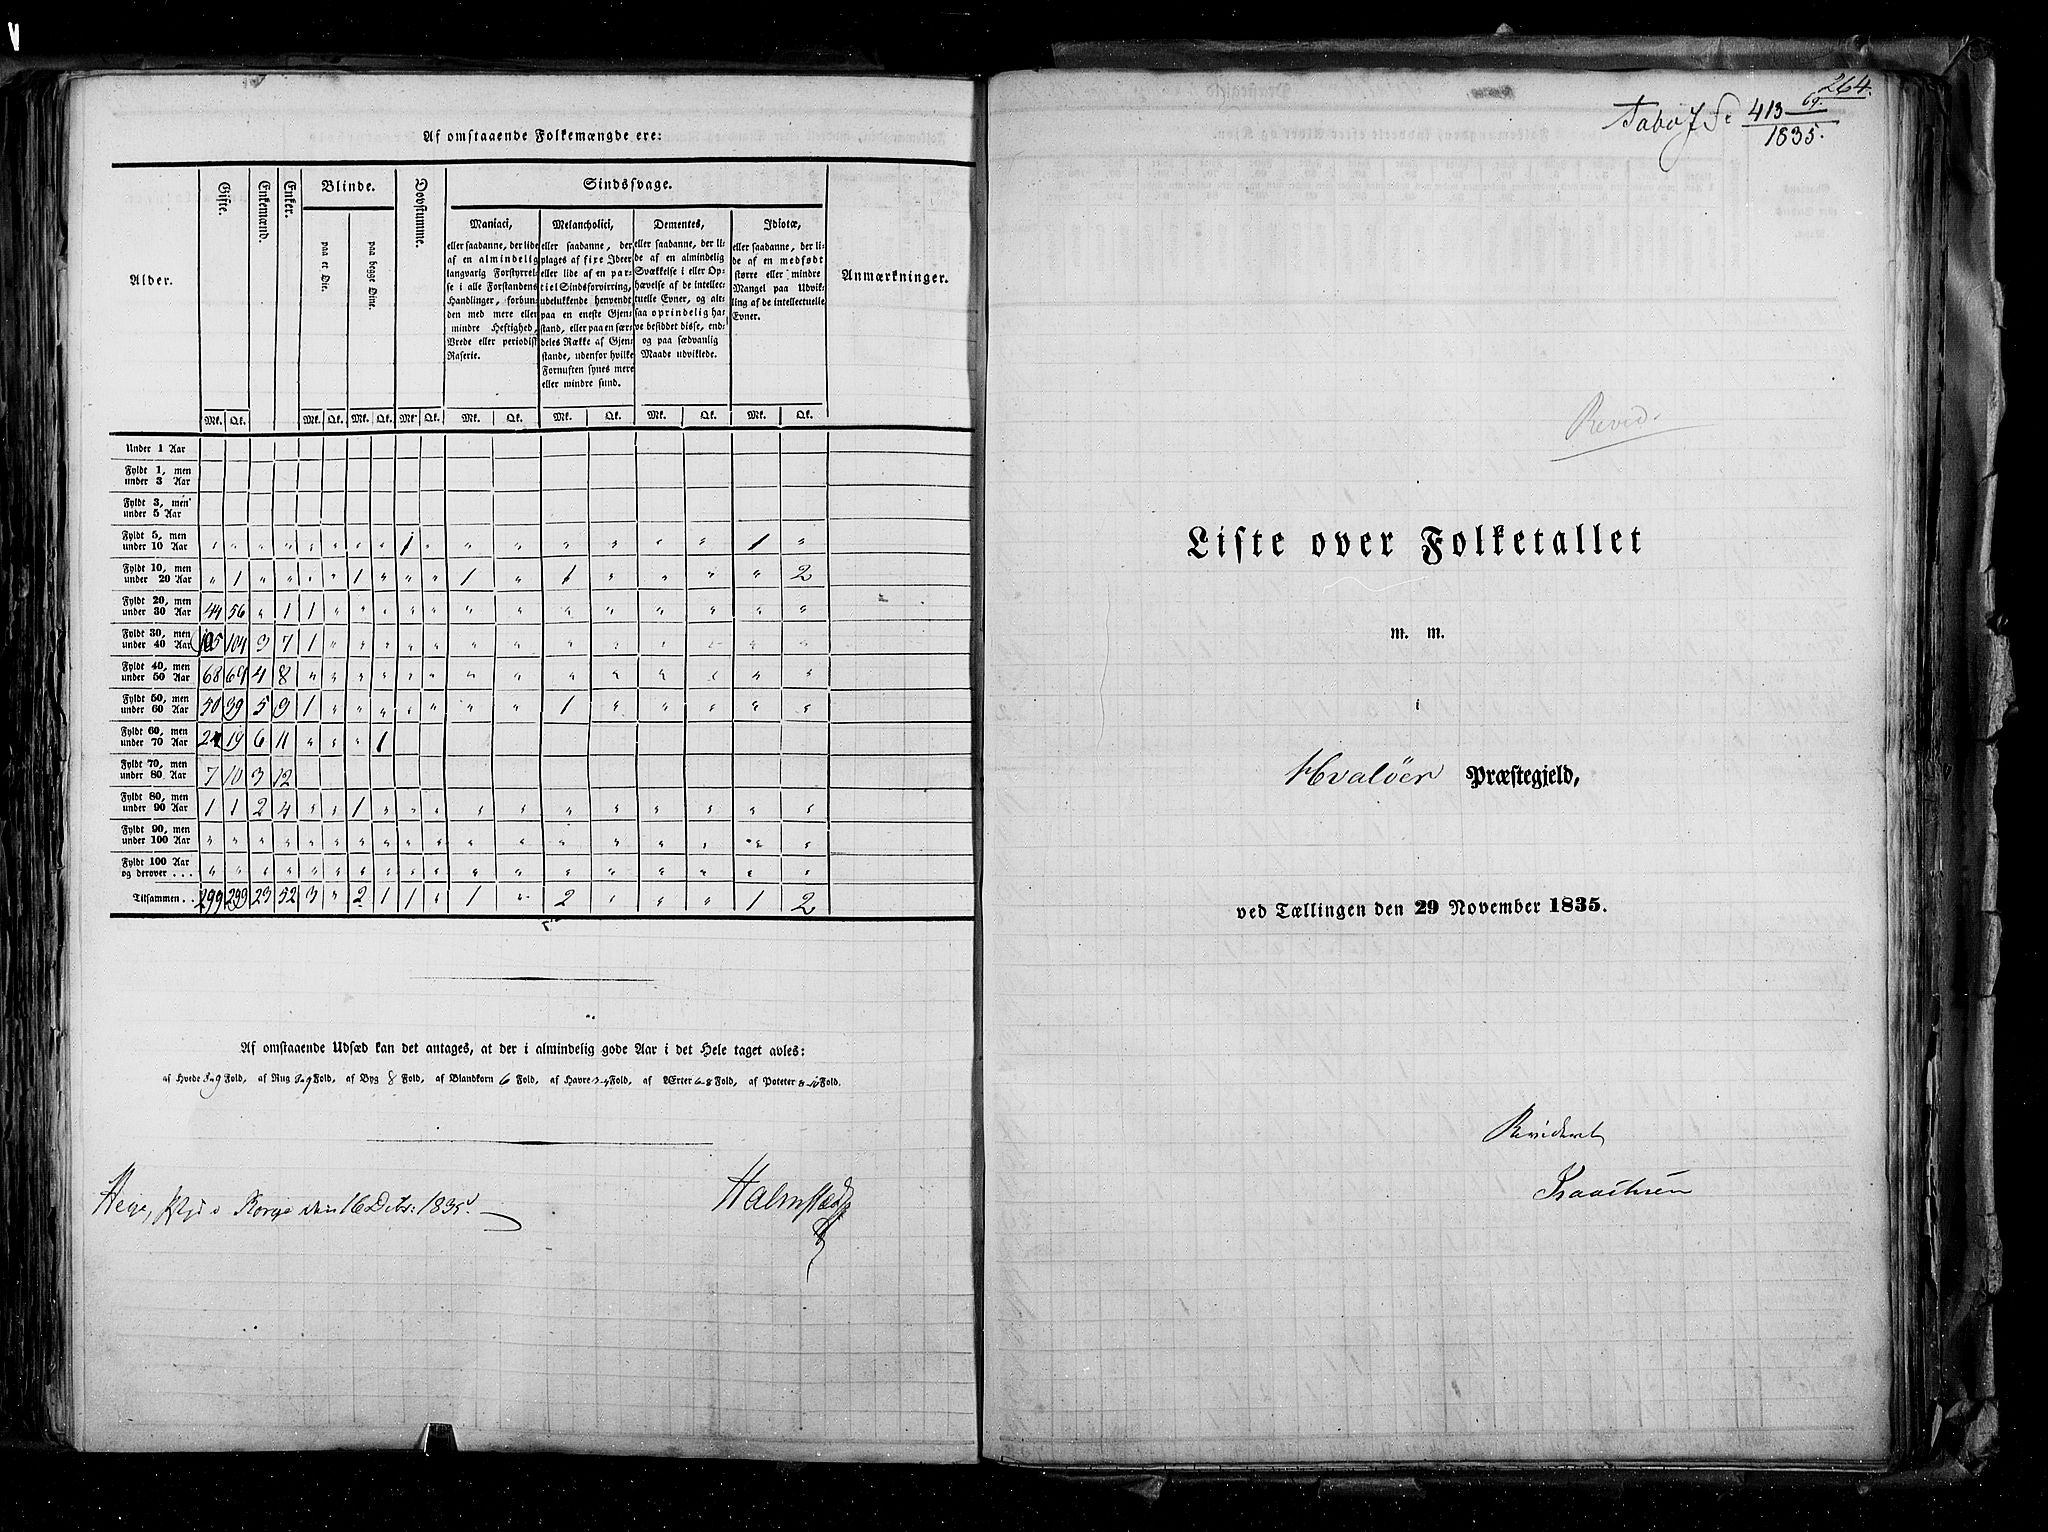 Af omstaaende Folkemængde ere:
Alder. Gifte. Enkemænd. Enker. Blinde. Dovstumme. Sindssvage. Anmærkninger.
paa et Øie. paa begge Øine.
Maniaci,
eller saadanne, der lide
af en almindelig
langvarig Forstyrrel-
se i alle Forstandens
Handlinger, forbun-
den med mere eller
mindre Heftighed,
Vrede eller periodisk
Raserie.
Melancholici,
eller saadanne, der
plages af fixe Ideer
eller lide af en par-
tiel Sindsforvirring,
udelukkende henvendt
paa en eneste Gjen-
stand, eller paa en sær-
deles Række af Gjen-
stande, udenfor hvilke
Fornuften synes mere
eller mindre sund.
Dementes,
eller saadanne, der li-
de af en almindelig
Svækkelse i eller Op-
hævelse af de intellec-
tuelle Evner, og alt-
saa oprindelig ha-
ve besiddet disse, end-
og paa sædvanlig
Maade udviklede.
Idiotæ,
eller saadanne, der li-
de af en medfødt
større eller mindre
Mangel paa Udvik-
ling af de intellectuelle
Evner.
Mk. Qk. Mk. Qk. Mk. Qk. Mk. Qk. Mk. Qk. Mk. Qk. Mk. Qk. Mk. Qk.
Under 1 Aar
Fyldt 1, men
under 3 Aar
Fyldt 3, men
under 5 Aar
Fyldt 5, men
under 10 Aar " " " " " " " " 1 " " " " " " " 1 "
Fyldt 10, men
under 20 Aar " 1 " " " " 1 " " " 1 " 1 " " " " 2
Fyldt 20, men
under 30 Aar 44 56 " 1 1 " " " " " " " " " " " " "
Fyldt 30, men
under 40 Aar 105 104 3 7 1 " " " " " " " " " " " " "
Fyldt 40, men
under 50 Aar 68 69 4 8 " " " " " " " " " " " " " "
Fyldt 50, men
under 60 Aar 50 39 5 9 1 " " " " " " " 1 " " " " "
Fyldt 60, men
under 70 Aar 24 19 6 11 " " " 1
Fyldt 70, men
under 80 Aar 7 10 3 12
Fyldt 80, men
under 90 Aar 1 1 2 4 " " 1 " " " " " " " " " " "
Fyldt 90, men
under 100 Aar " " " " " " " " " " " " " " " " " "
Fyldt 100 Aar
og derover . . . " " " " " " " " " " " " " " " " " "
Tilsammen . . 299 299 23 52 3 " 2 1 1 " 1 " 2 " " " 1 2
Af omstaaende Udsæd kan det antages, at der i almindelig gode Aar i det Hele taget avles:
af Hvede 8-9 Fold, af Rug 8-9 Fold, af Byg 8 Fold, af Blandkorn 6 Fold, af Havre 3-4 Fold, af Ærter 6-8 Fold, af Poteter 8-10 Fold.
den 16 Decbr: 1835
Halmstad
264.
413
69.
1835.
Revid.
Liste over Folketallet
m. m.
i
Hvaløer Præstegjeld,
ved Tællingen den 29 November 1835.
Revideret
Isaachsen